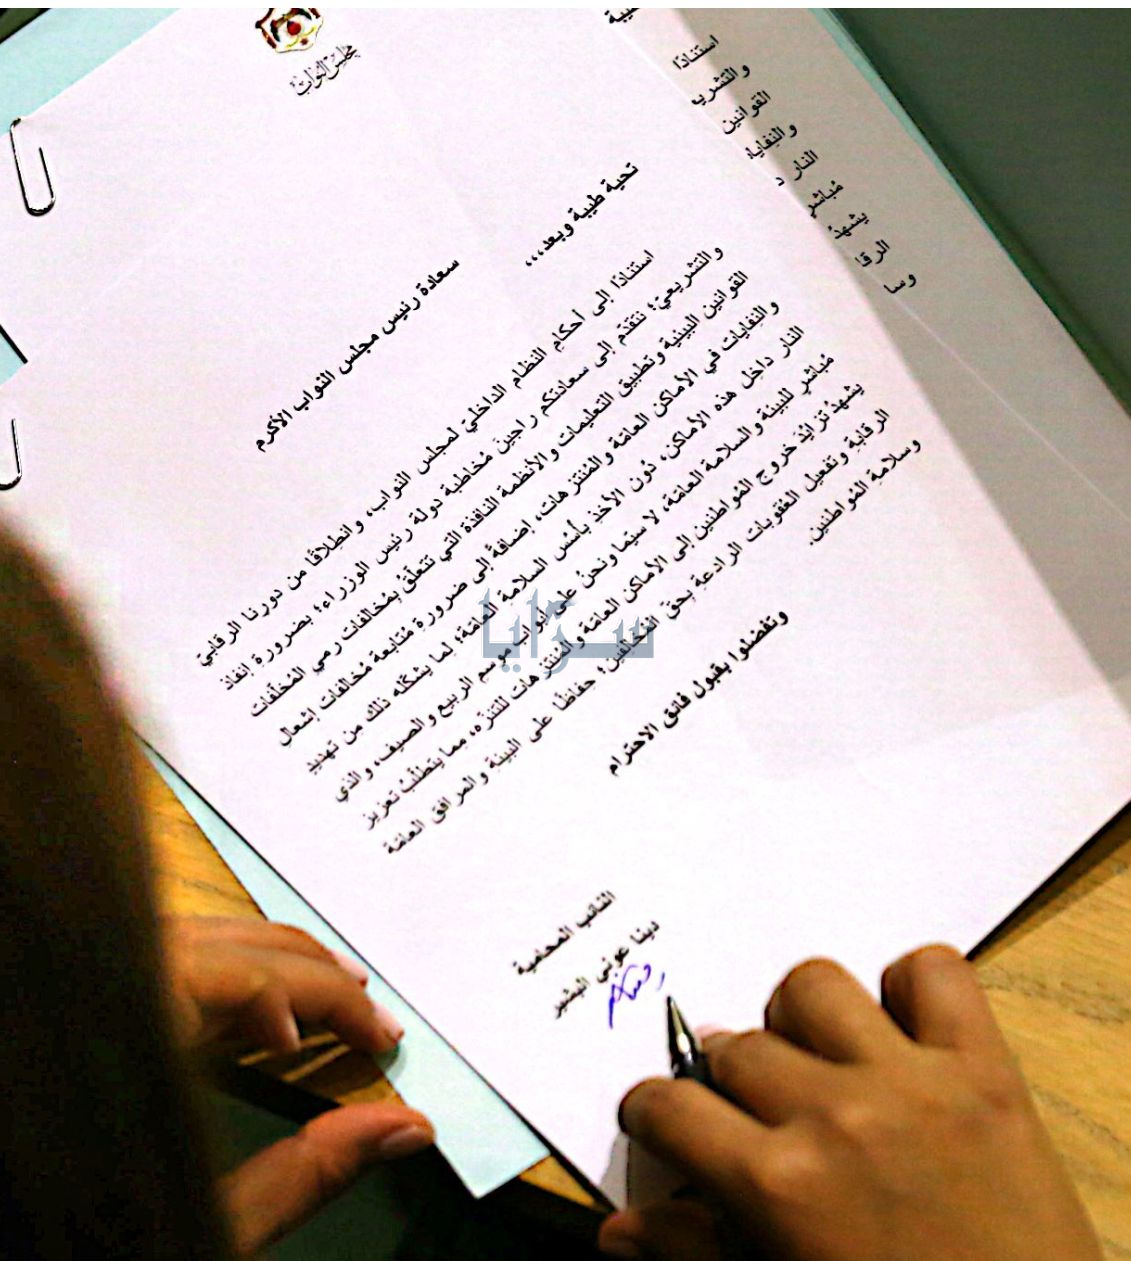 مجلس النواب
سعادة رئيس مجلس النواب الأكرم
تحية طيبة وبعد،،،
استنادًا إلى أحكام النظام الداخلي لمجلس النواب، وانطلاقًا من دورنا الرقابيّ
والتشريعيّ؛ نتقدّم إلى سعادتكم راجين مُخاطبة دولة رئيس الوزراء؛ بضرورة إنفاذ
القوانين البيئية وتطبيق التعليمات والأنظمة النافذة التي تتعلّقُ بمُخالفات رمي المُخلّفات
والنفايات في الأماكن العامّة والمُتنزهات، إضافةً إلى ضرورةِ مُتابعة مُخالفات إشعالِ
النار داخل هذه الأماكن، دُون الأخذِ بأُسس السلامة العامّة؛ لما يشكّله ذلك من تهديدٍ
مُباشرٍ للبيئة والسلامة العامّة، لا سيّما ونحنُ على أبواب موسم الربيع والصيف، والذي
يشهدُ تزايُدَ خروج المُواطنين إلى الأماكن العامّة والمُتنزهات للتنزّه، مما يتطلّبُ تعزيز
الرقابةِ وتفعيل العقوبات الرادعةِ بحقّ المُخالفين؛ حِفاظًا على البيئة والمرافق العامّة
وسلامةِ المُواطنين.
وتفضلوا بقبول فائق الاحترام
النائب المحامية
دينا عوني البشير
استنادًا
والتشريـ
القوانين
والنفايا
النار د
مُباشر
يشهدُ
الرقا
وسا
سرايا